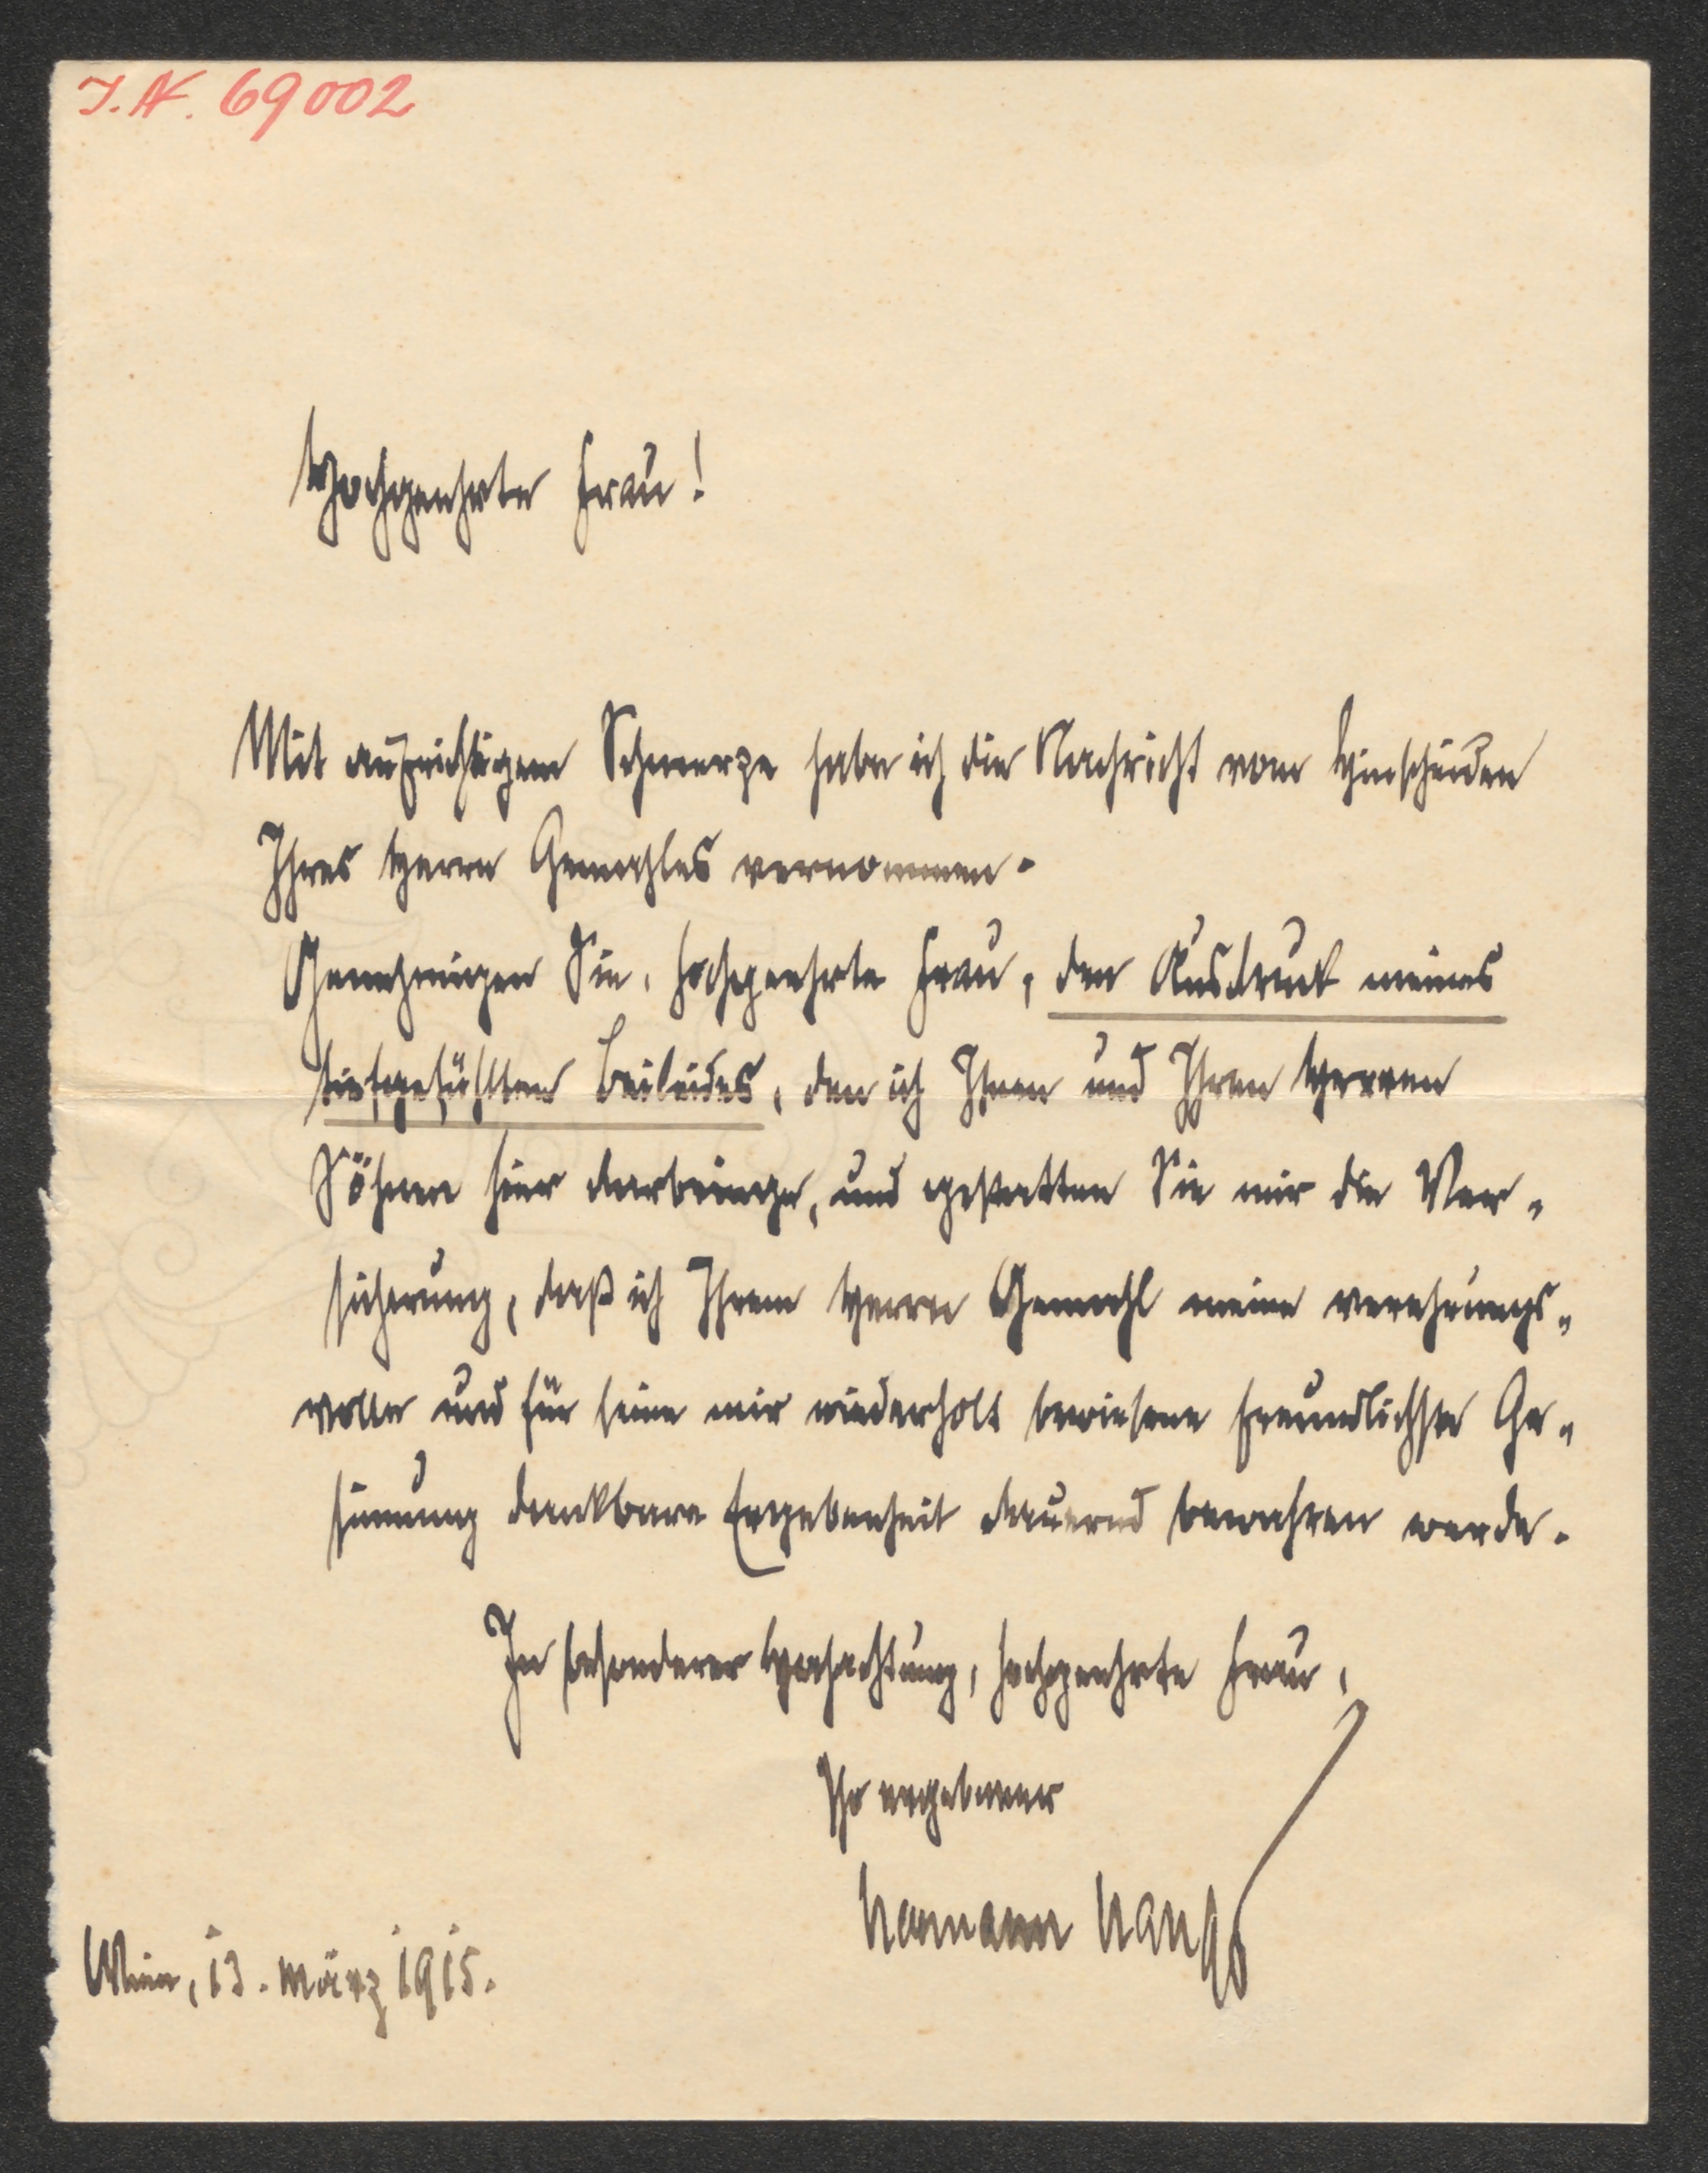 I.N. 69002
Hochgeehrte Frau!
Mit aufrichtigem Schmerze habe ich die Nachricht vom Hinscheiden
Ihres Herrn Gemahles vernommen.
Genehmigen Sie, hochgeehrte Frau, den Ausdruck meines
tiefgefühlten Beileides, den ich Ihnen und Ihren Herren
Söhnen hier darbringe, und gestatten Sie mir die Ver-
sicherung, daß ich Ihrem Herrn Gemahl meine verehrungs-
volle und für seine mir wiederholt bewiesene freundlichste Ge-
sinnung dankbare Ergebenheit dauernd bewahren werde.
In besonderer Hochachtung, hochgeehrte Frau,
Ihr ergebener
Hermann
Wien, 13. März 1915.